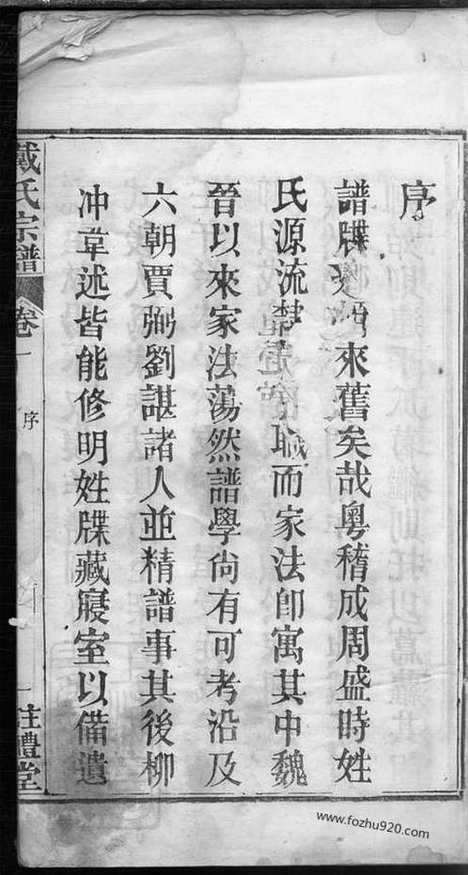 序
譜牒之由來舊矣哉粵稽成周盛時姓
氏源流楚有專職而家法卽寓其中魏
晉以來家法蕩然譜學尚有可考沿及
六朝賈弼劉諶諸人並精譜事其後柳
冲韋述皆能修明姓牒藏寢室以備遺
戴氏宗譜
卷一
序
一
注禮堂
www.fozhu920.com